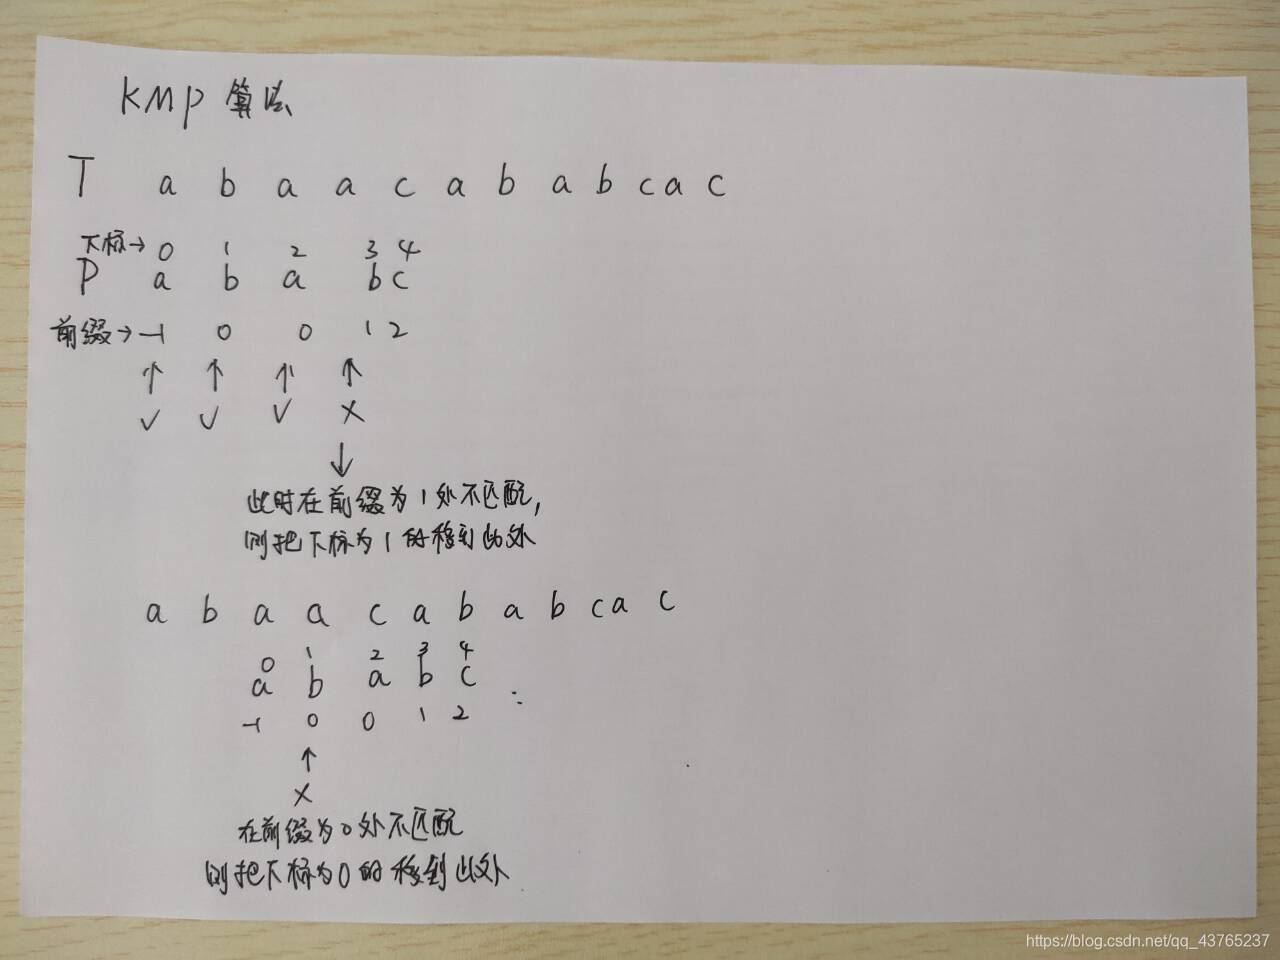 KMP 算法
T a b a a c a b a b c a c
下标→ 0 1 2 3 4
P a b a b c
前缀→ -1 0 0 1 2
↑ ↑ ↑ ↑
✓ ✓ ✓ ×
↓
此时在前缀为1处不匹配,
则把下标为1的移到此处
a b a a c a b a b c a c
0 1 2 3 4
a b a b c
-1 0 0 1 2
↑
×
在前缀为0处不匹配
则把下标为0的移到此处
https://blog.csdn.net/qq_43765237